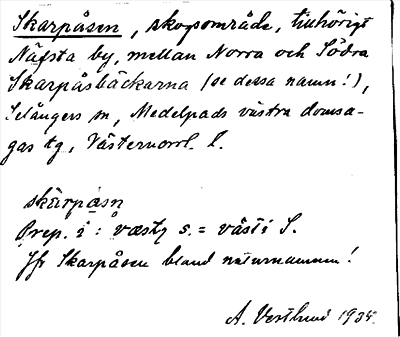 Skarpåsen, skogsområde, tillhörigt
Näfsta by, mellan Norra och Södra
Skarpåsbäckarna (se dessa namn!),
Selångers sn, Medelpads västra domsa-
gas tg, Västernorrl. l.
skárpåsn
Prep. i : væsty s. = västi S.
Jfr Skarpåsen bland naturnamnen!
A. Vestlund 1935.